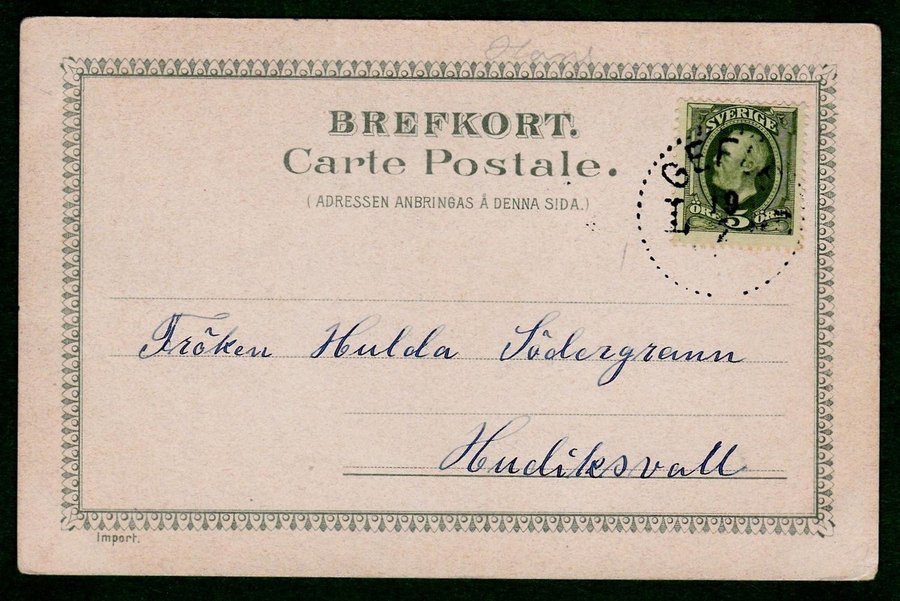 BREFKORT.
Carte Postale.
(ADRESSEN ANBRINGAS Å DENNA SIDA.)
SVERIGE
ÖRE 5 ÖRE
19
7
Fröken Hulda Södergrann
Hudiksvall
Import.